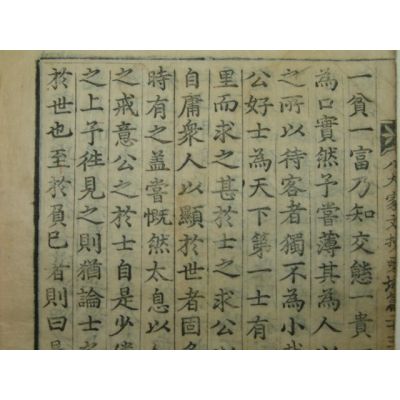 一貧一富乃知交態一貴
為口實然予嘗薄其為人以
之所以待客者獨不為小哉
公好士為天下第一士有
里而求之甚於士之求公以
自庸衆人以顯於世者固多
時有之盖嘗慨然太息以
之戒意公之於士自是少倦
之上予徃見之則猶論士之
於世也至於負已者則曰是